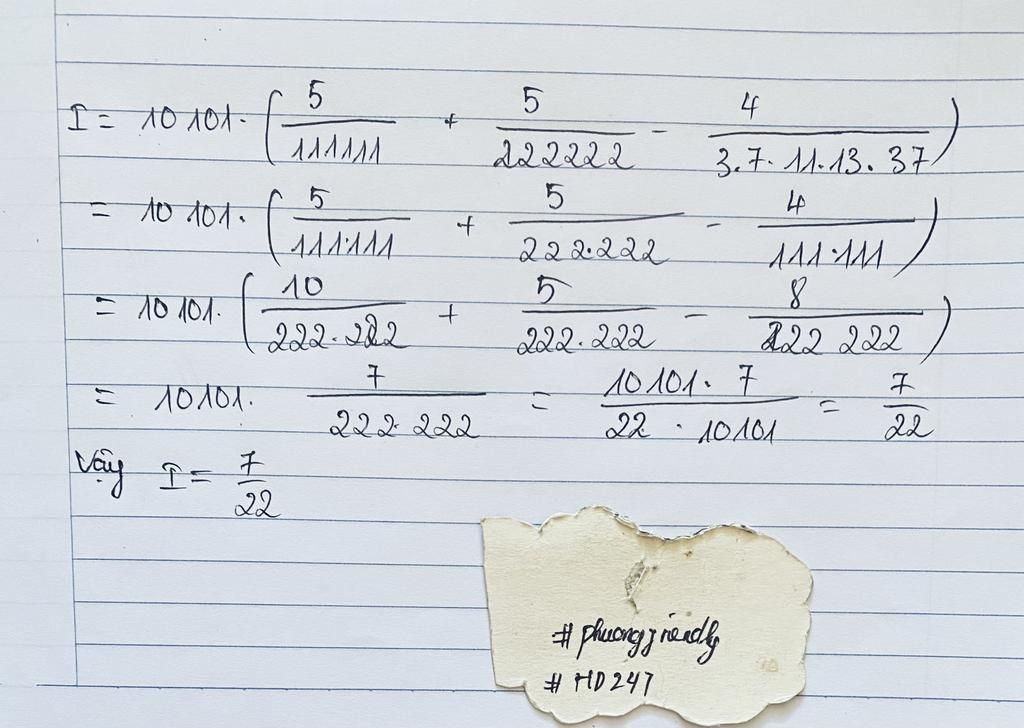 I = 10 101 . ( 5/111111 + 5/222222 - 4/3.7.11.13.37 )
= 10 101 . ( 5/111.111 + 5/222.222 - 4/111.111 )
= 10 101 . ( 10/222.222 + 5/222.222 - 8/222 222 )
= 10101 . 7/222.222 = 10101 . 7/22 . 10101 = 7/22
Vậy I = 7/22
# HD247